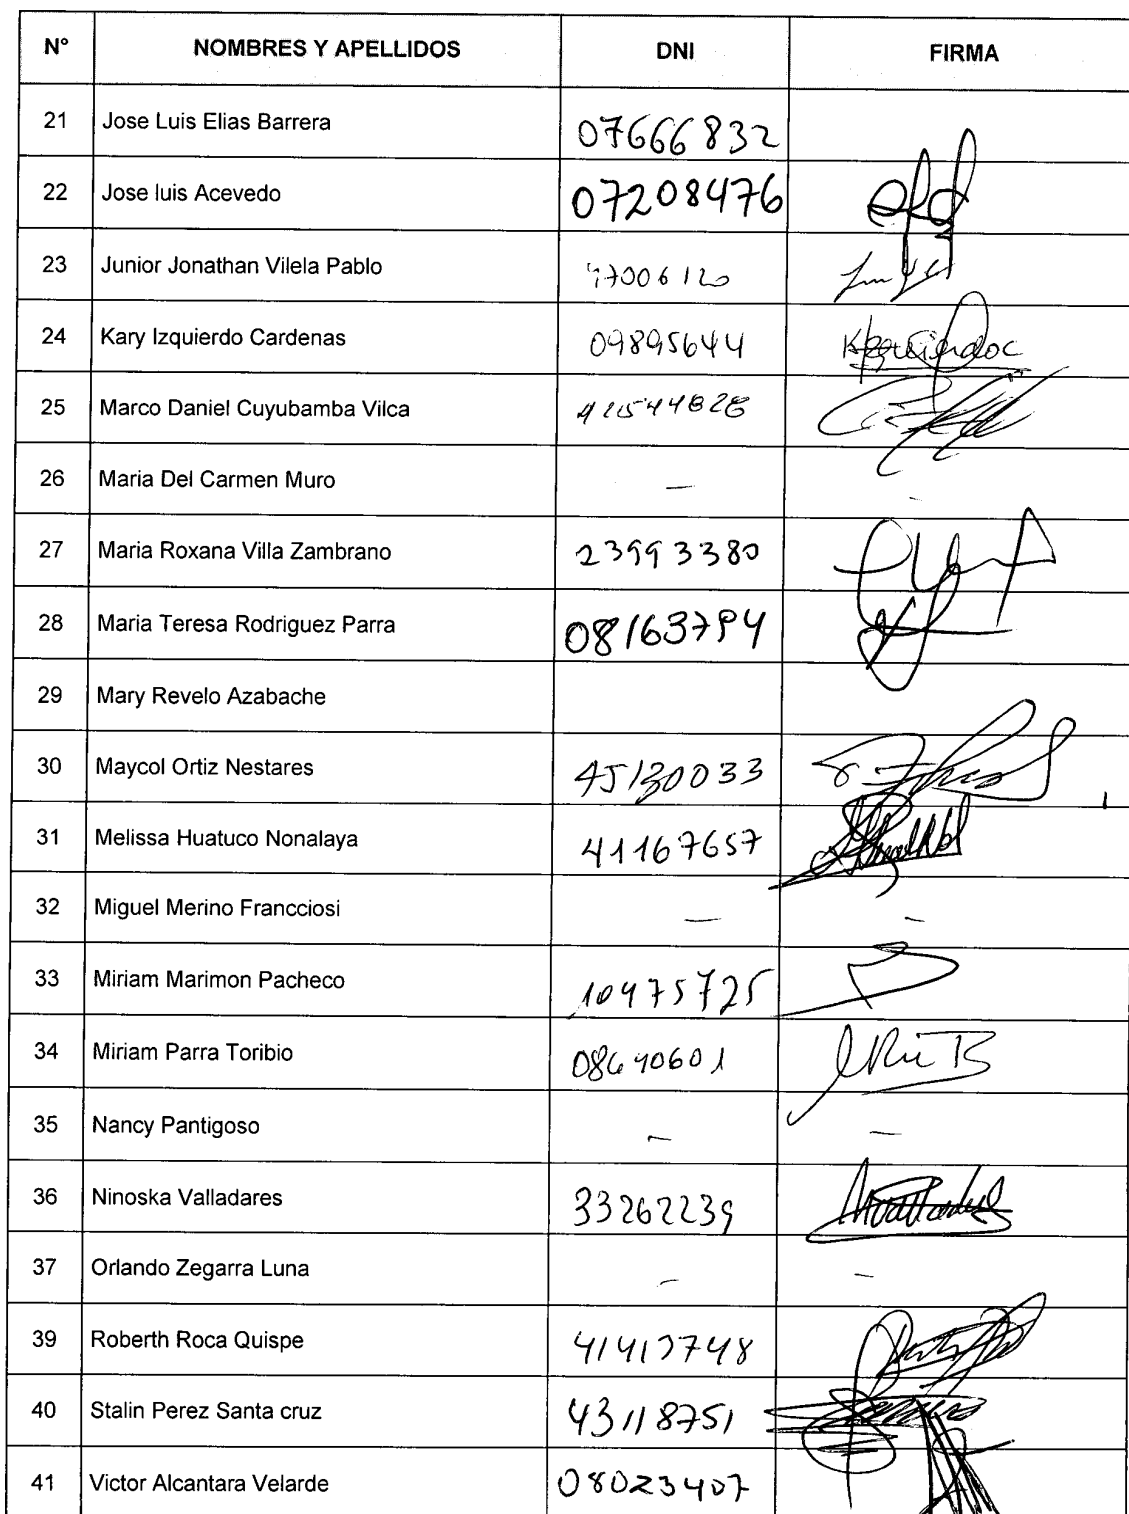 N° NOMBRES Y APELLIDOS DNI FIRMA
21 Jose Luis Elias Barrera 07666832
22 Jose luis Acevedo 07208476
23 Junior Jonathan Vilela Pablo
24 Kary Izquierdo Cardenas 09895644
25 Marco Daniel Cuyubamba Vilca
26 Maria Del Carmen Muro — -
27 Maria Roxana Villa Zambrano 23993380
28 Maria Teresa Rodriguez Parra 08163794
29 Mary Revelo Azabache
30 Maycol Ortiz Nestares 45130033
31 Melissa Huatuco Nonalaya 41167657
32 Miguel Merino Francciosi — –
33 Miriam Marimon Pacheco 10475725
34 Miriam Parra Toribio
35 Nancy Pantigoso – —
36 Ninoska Valladares 33262239
37 Orlando Zegarra Luna – –
39 Roberth Roca Quispe
40 Stalin Perez Santa cruz 43118751
41 Victor Alcantara Velarde 08023407